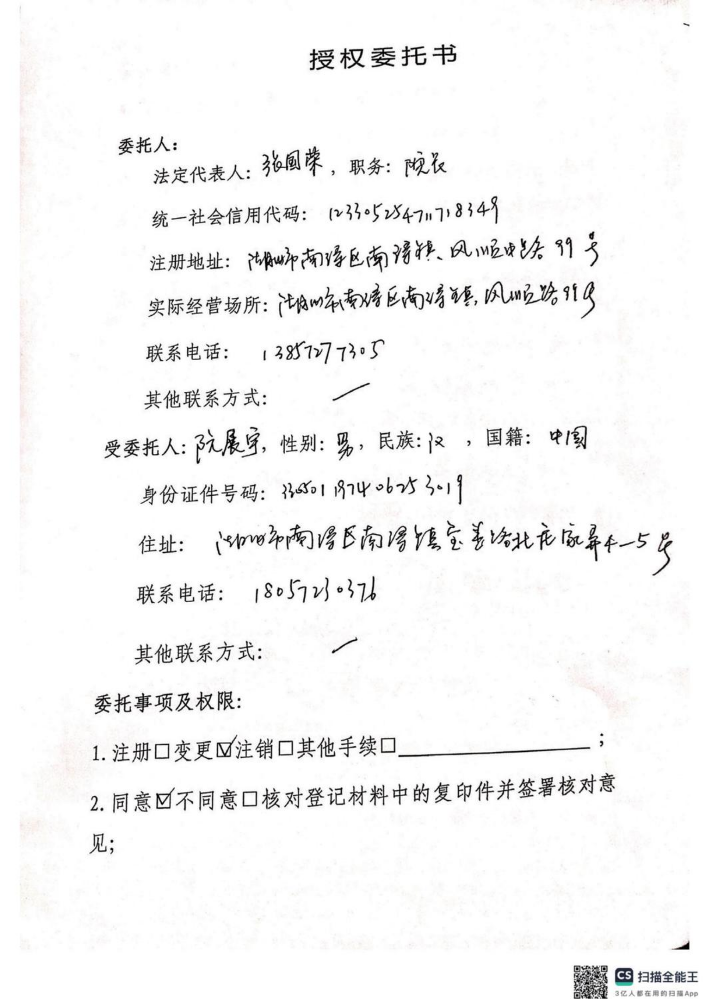 授权委托书
委托人：
法定代表人：张国荣，职务：院长
统一社会信用代码：123305254711718349
注册地址：湖州市南浔区南浔镇、风顺中路99号
实际经营场所：湖州市南浔区南浔镇风顺路99号
联系电话：13857277305
其他联系方式：/
受委托人：阮展宇，性别：男，民族：汉，国籍：中国
身份证件号码：330501197406253019
住址：湖州市南浔区南浔镇宝善路北庄家弄4-5号
联系电话：18057230376
其他联系方式：/
委托事项及权限：
1.注册□变更☑注销□其他手续□____________；
2.同意☑不同意□核对登记材料中的复印件并签署核对意
见；
CS 扫描全能王
3亿人都在用的扫描App